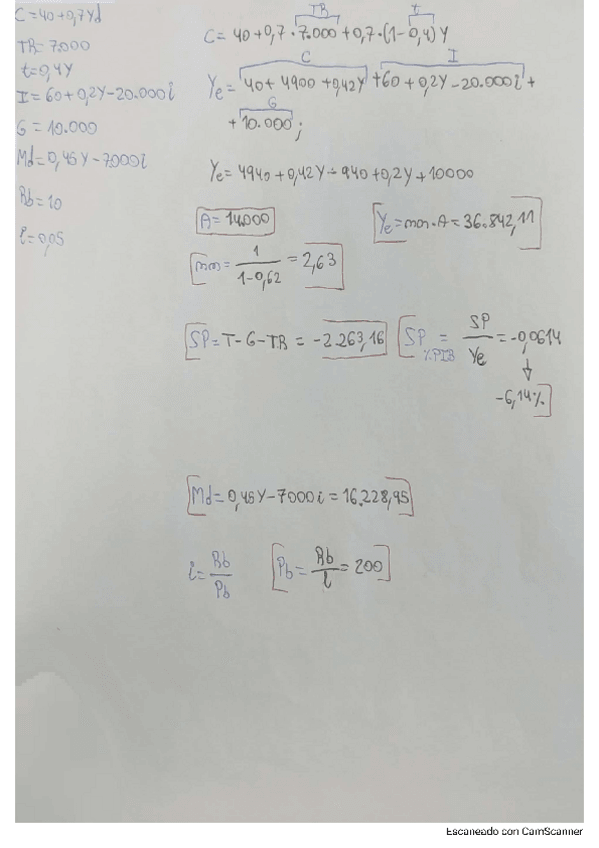 C = 40 + 0,7Yd
TR = 7.000
t = 0,4Y
I = 60 + 0,2Y - 20.000i
G = 10.000
Md = 0,45Y - 7000i
Rb = 10
i = 0,05
TR t
C = 40 + 0,7 · 7.000 + 0,7 · (1 - 0,4) Y
C I
Ye = 40 + 4900 + 0,42Y + 60 + 0,2Y - 20.000i +
G
+ 10.000;
Ye = 4940 + 0,42Y - 940 + 0,2Y + 10000
A = 14.000 Ye = mm · A = 36.842,11
mm = 1/(1 - 0,62) = 2,63
SP = T - G - TR = -2.263,16 SP %PIB = SP/Ye = -0,0614
-6,14%
Md = 0,45Y - 7000i = 16.228,95
i = Rb/Pb Pb = Rb/i = 200
Escaneado con CamScanner